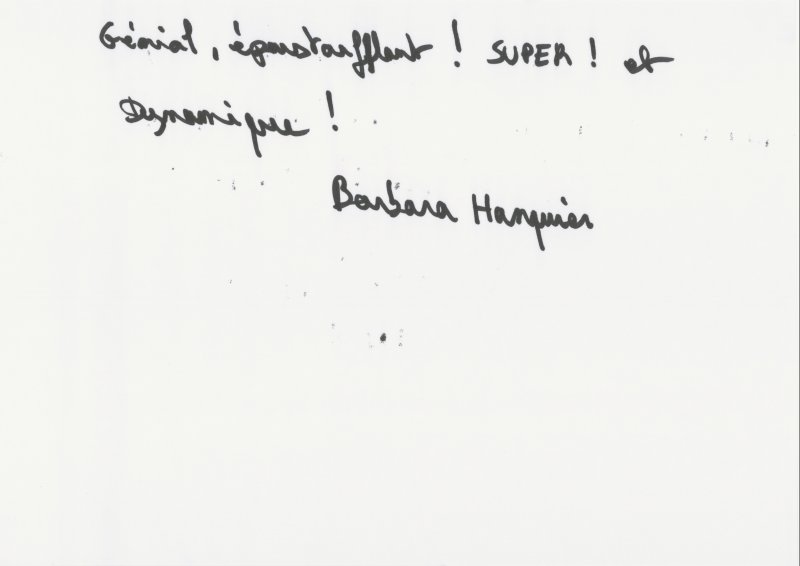 Génial, époustouflant ! SUPER ! et
Dynamique !
Barbara Hanquier